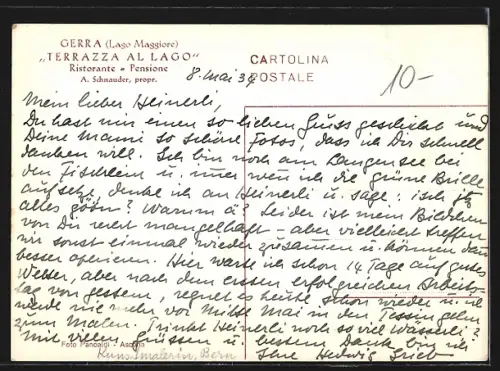 GERRA (Lago Maggiore)
„TERRAZZA AL LAGO"
Ristorante - Pensione
A. Schnauder, propr.
CARTOLINA
POSTALE
10-
8. Mai 39
Mein lieber Heinerli,
Du hast mir einen so lieben Gruss geschickt und
Deine Mami so schöne Fotos, dass ich Dir schnell
danken will. Ich bin noch am Langensee bei
den Fischlein u. immer wenn ich die grüne Brille
aufsetze, denke ich an Heinerli u. sage: isch
alles grün? Warum ä? Leider ist mein Bildchen
von Dir recht mangelhaft - aber vielleicht treffen
wir sonst einmal wieder zusammen u. können dann
besser operieren. Hier warte ich schon 14 Tage auf gutes
Wetter, aber nach dem ersten erfolgreichen Arbeits-
tag von gestern, regnet es heute schon wieder u. ich
werde nie mehr vor Mitte Mai in den Tessin gehen
zum Malen. Trinkt Heinerli noch so viel Wasserli?
Mit vielen Grüssen u. bestem Dank bin ich
Ihre Hedwig
Foto Pancaldi - Ascona
Kunstmalerin, Bern